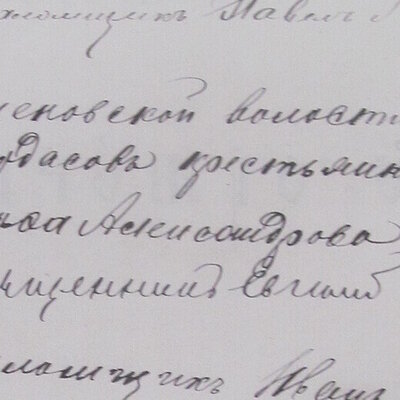 аломщикъ Павелъ
еновской волости
рдасовъ крестьянин
Александрова
ященникъ Евгений
аломщикъ Иванъ